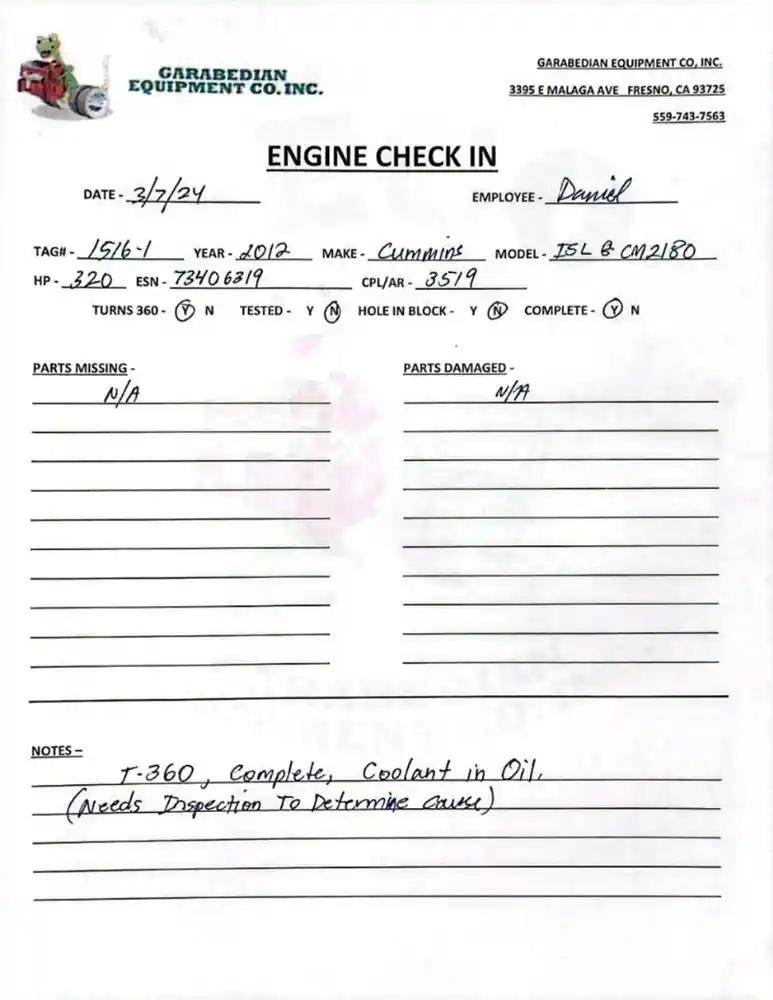 GARABEDIAN
EQUIPMENT CO. INC.
GARABEDIAN EQUIPMENT CO, INC.
3395 E MALAGA AVE FRESNO, CA 93725
559-743-7563
ENGINE CHECK IN
DATE - 3/7/24 EMPLOYEE - Daniel
TAG# - 1516-1 YEAR - 2012 MAKE - Cummins MODEL - ISL 8 CM2180
HP - 320 ESN - 73406319 CPL/AR - 3519
TURNS 360 - Y N TESTED - Y N HOLE IN BLOCK - Y N COMPLETE - Y N
PARTS MISSING - PARTS DAMAGED -
N/A N/A
NOTES –
T-360, Complete, Coolant in Oil,
(Needs Inspection To Determine cause)